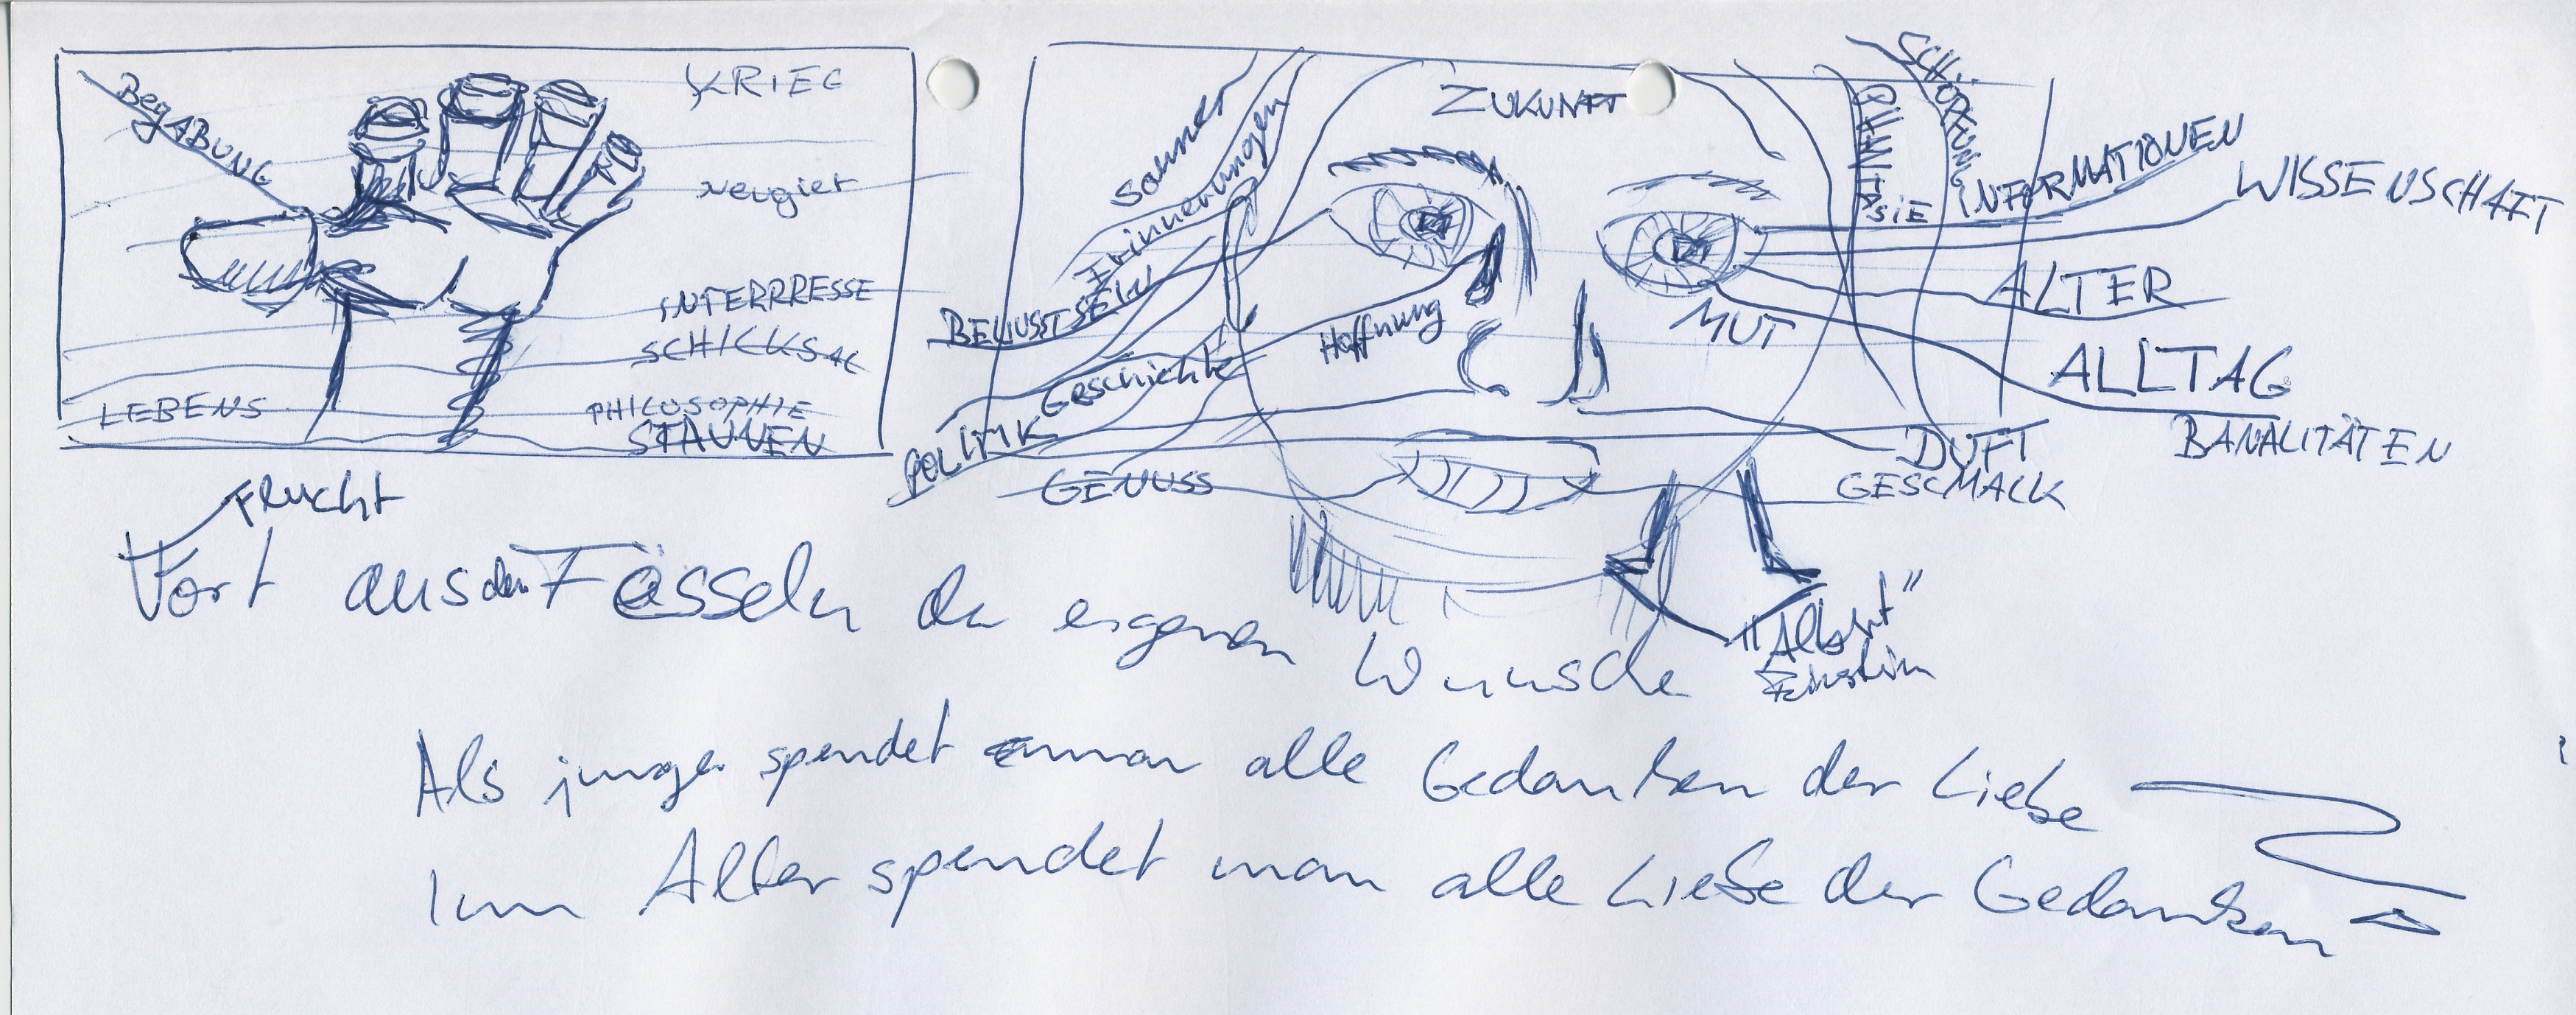 BegABUNG
KRIEG
Neugier
INTERRRESSE
SCHICKSAL
LEBENS PHILOSOPHIE
STAUNEN
Erinnerungen
ZUKUNFT
PHANTASIE
SCHÖPFUNG
INFORMATIONEN
WISSENSCHAFT
BEWUSSTSEIN
Hoffnung
MUT
ALTER
Geschichte
ALLTAG
POLITIK
DUFT
BANALITÄTEN
GENUSS
GESCMACK
FRucht
Fort aus den Fässeln der eigenen Wünsche
"Albert"
Einstein
Als junge spendet man alle Gedanken der Liebe
Im Alter spendet man alle Liebe der Gedanken